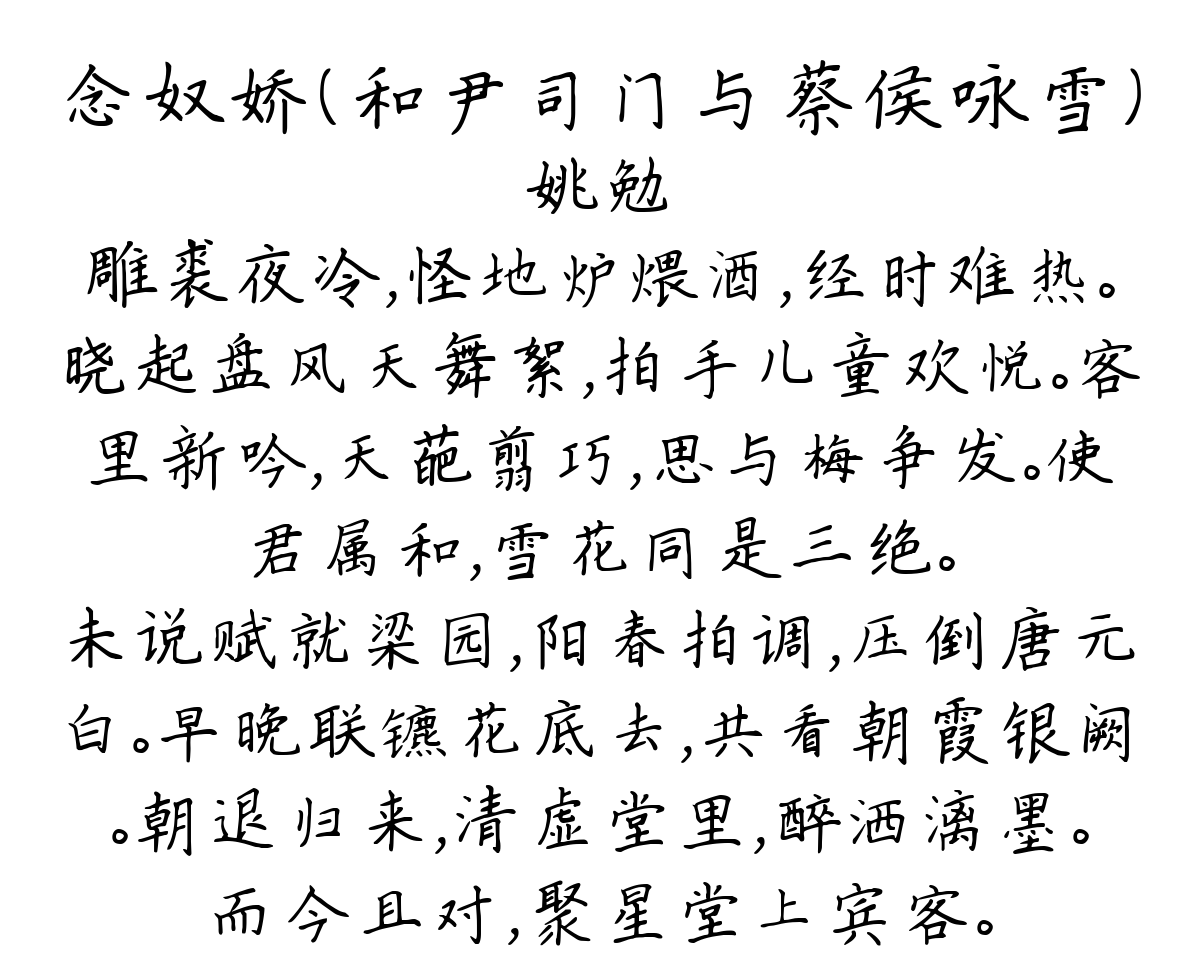 念奴娇(和尹司门与蔡侯咏雪)
姚勉
雕裘夜冷,怪地炉煨酒,经时难热。
晓起盘风天舞絮,拍手儿童欢悦。客
里新吟,天葩翦巧,思与梅争发。使
君属和,雪花同是三绝。
未说赋就梁园,阳春拍调,压倒唐元
白。早晚联镳花底去,共看朝霞银阙
。朝退归来,清虚堂里,醉洒漓墨。
而今且对,聚星堂上宾客。